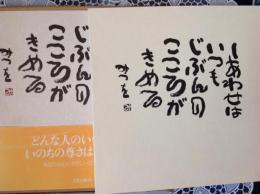 じぶんの
こころが
きめる
みつを
どんな人のい
いのちの尊さは
しあわせは
いつも
じぶんの
こころが
きめる
みつを